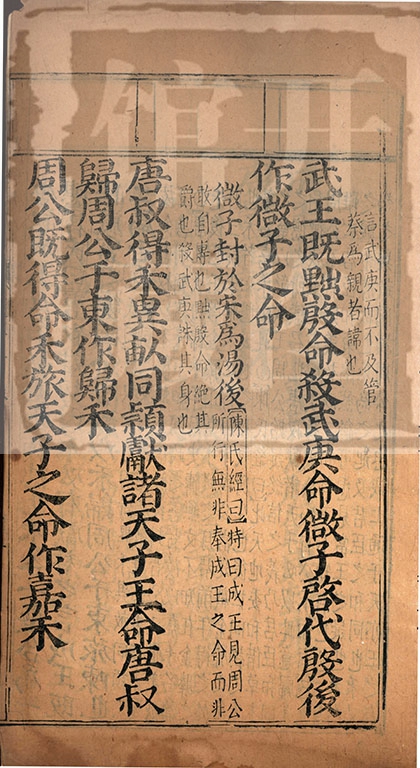 言武庚而不及管
蔡為親者諱也
武王既黜殷命殺武庚命微子啓代殷後
作微子之命
微子封於宋為湯後【陳氏經曰】特曰成王見周公
所行無非奉成王之命而非
敢自專也黜殷命絶其
爵也殺武庚誅其身也
唐叔得禾異畝同穎獻諸天子王命唐叔
歸周公于東作歸禾
周公既得命禾旅天子之命作嘉禾